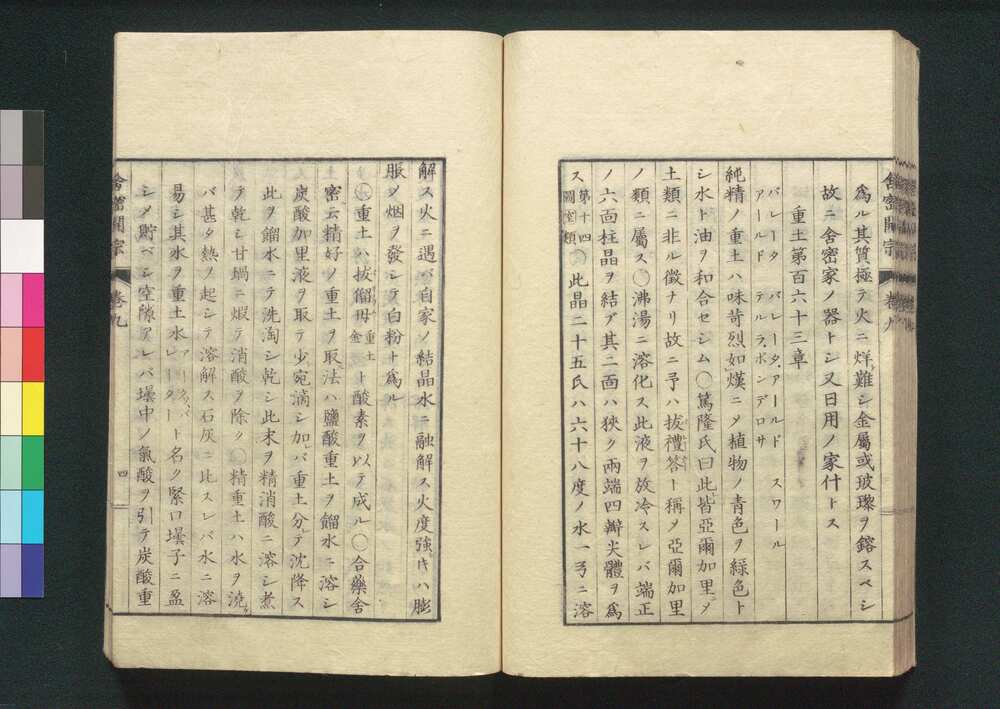 爲ル其質極テ火ニ烊難シ金屬或玻瓈ヲ鎔スベシ
故ニ舍密家ノ器トシ又日用ノ家什トス
重土第百六十三章
バレータ バレータ、アールド スワール
アールド テルラ、ポンデロサ
純精ノ重土ハ味苛烈如𤐫ニメ植物ノ青色ヲ綠色ト
シ水ト油ヲ和合セシム○篤隆氏曰此皆亞爾加里ニメ
土類ニ非ル徴ナリ故ニ予ハ拔禮答ト稱メ亞爾加里
ノ類ニ屬ス○沸湯ニ溶化ス此液ヲ放冷スレバ端正
ノ六面柱晶ヲ結ブ其二面ハ狹ク兩端四瓣尖體ヲ爲
ス第十四圖 此晶二十五氏ハ六十八度ノ水一弓ニ溶
舍密開宗 卷九
解ス火ニ遇バ自家ノ結晶水ニ融解ス火度強キハ膨
脹メ烟ヲ發シテ白粉ト爲ル
○重土ハ拔儸母重土金ト酸素ヲ以テ成ル○合藥舍
密云精好ノ重土ヲ取法ハ鹽酸重土ヲ餾水ニ溶シ
炭酸加里液ヲ取テ少宛滴シ加バ重土分テ沈降ス
此ヲ餾水ニテ洗淘シ乾シ此末ヲ精消酸ニ溶シ煮
テ乾シ甘堝ニ煆テ消酸ヲ除ク○精重土ハ水ヲ澆
バ甚タ熱ヲ起シテ溶解ス石灰ニ比スレバ水ニ溶
易シ其水ヲ重土水ト名ク緊口壜子ニ盈
シメ貯ベシ空隙アレバ壜中ノ氣酸ヲ引テ炭酸重
舍密開宗 卷九
四